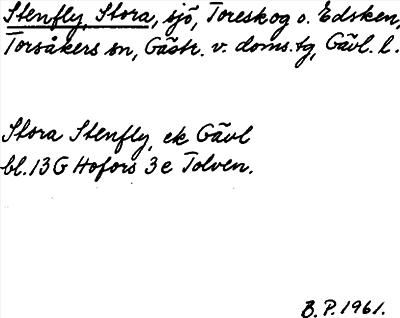 Stenfly, Stora, sjö, Toreskog o. Edsken,
Torsåkers sn, Gästr. v. doms.tg, Gävl. l.
Stora Stenfly, ek Gävl
bl. 13 G Hofors 3 e Tolven.
B. P. 1961.